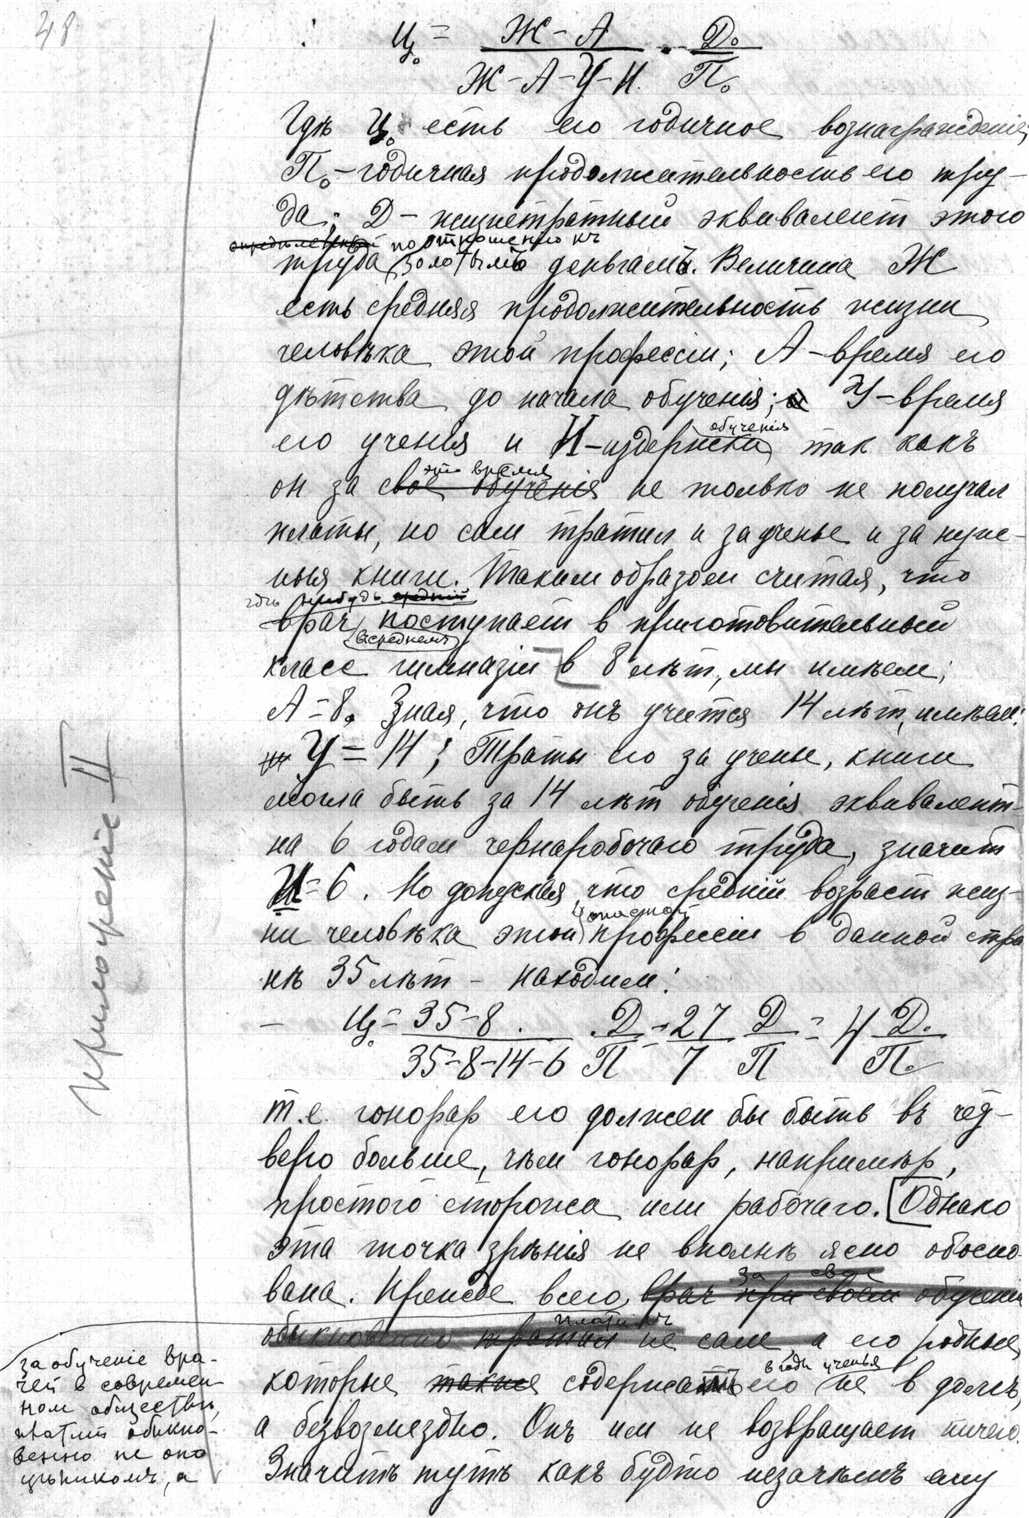 48
Ц₀ = Ж – А / Ж – А – У – И · Д₀ / П₀
Гдѣ Ц₀ есть его годичное вознагражденіе,
П₀ – годичная продолжительность его тру-
да; Д – жизнетратный эквивалент этого
опредѣленный по отношенію къ
труда золотымъ деньгамъ. Величина Ж
есть средняя продолжительность жизни
человѣка этой профессіи; А – время его
дѣтства до начала обученія; и У – время
обученія
его ученія и И – издержки, так какъ
это время
он за свое обученія не только не получал
платы, но сам тратил и за ученье и за нуж-
ныя книги. Таким образом считая, что
гдѣ нибудь средній
врач поступает в приготовительный
(в среднемъ)
класс гимназіи в 8 лѣт, мы имѣем:
А = 8. Зная, что онъ учится 14 лѣт, имѣем:
У = 14; Траты его за ученье, книги
могла быть за 14 лѣт обученія эквивалент-
на 6 годам чернарабочаго труда, значит
И = 6. Но допуская, что средній возраст жиз-
опасной
ни человѣка этой профессіи в данной стра
нѣ 35 лѣт – находим:
– Ц₀ = 35 – 8 / 35 – 8 – 14 – 6 · Д / П = 27 / 7 Д / П = 4 Д₀ / П₀
т.е. гонорар его должен бы быть въ чет-
веро больше, чѣм гонорар, напримѣр,
простого сторожа или рабочаго. [Однако
эта точка зрѣнія не вполнѣ ясно обосно-
за свое
вана. Прежде всего, врач при своем обученіи
платитъ
обыкновенно тратил не сам а его родные,
в годы ученья
которые такие содержатъ его не в долгъ,
а безвозмездно. Онъ им не возвращает ничего.
Значитъ тутъ какъ будто незачѣмъ ему
за обученіе вра-
чей в современ
ном обществѣ,
платит обыкно-
венно не
а
Приложеніе II